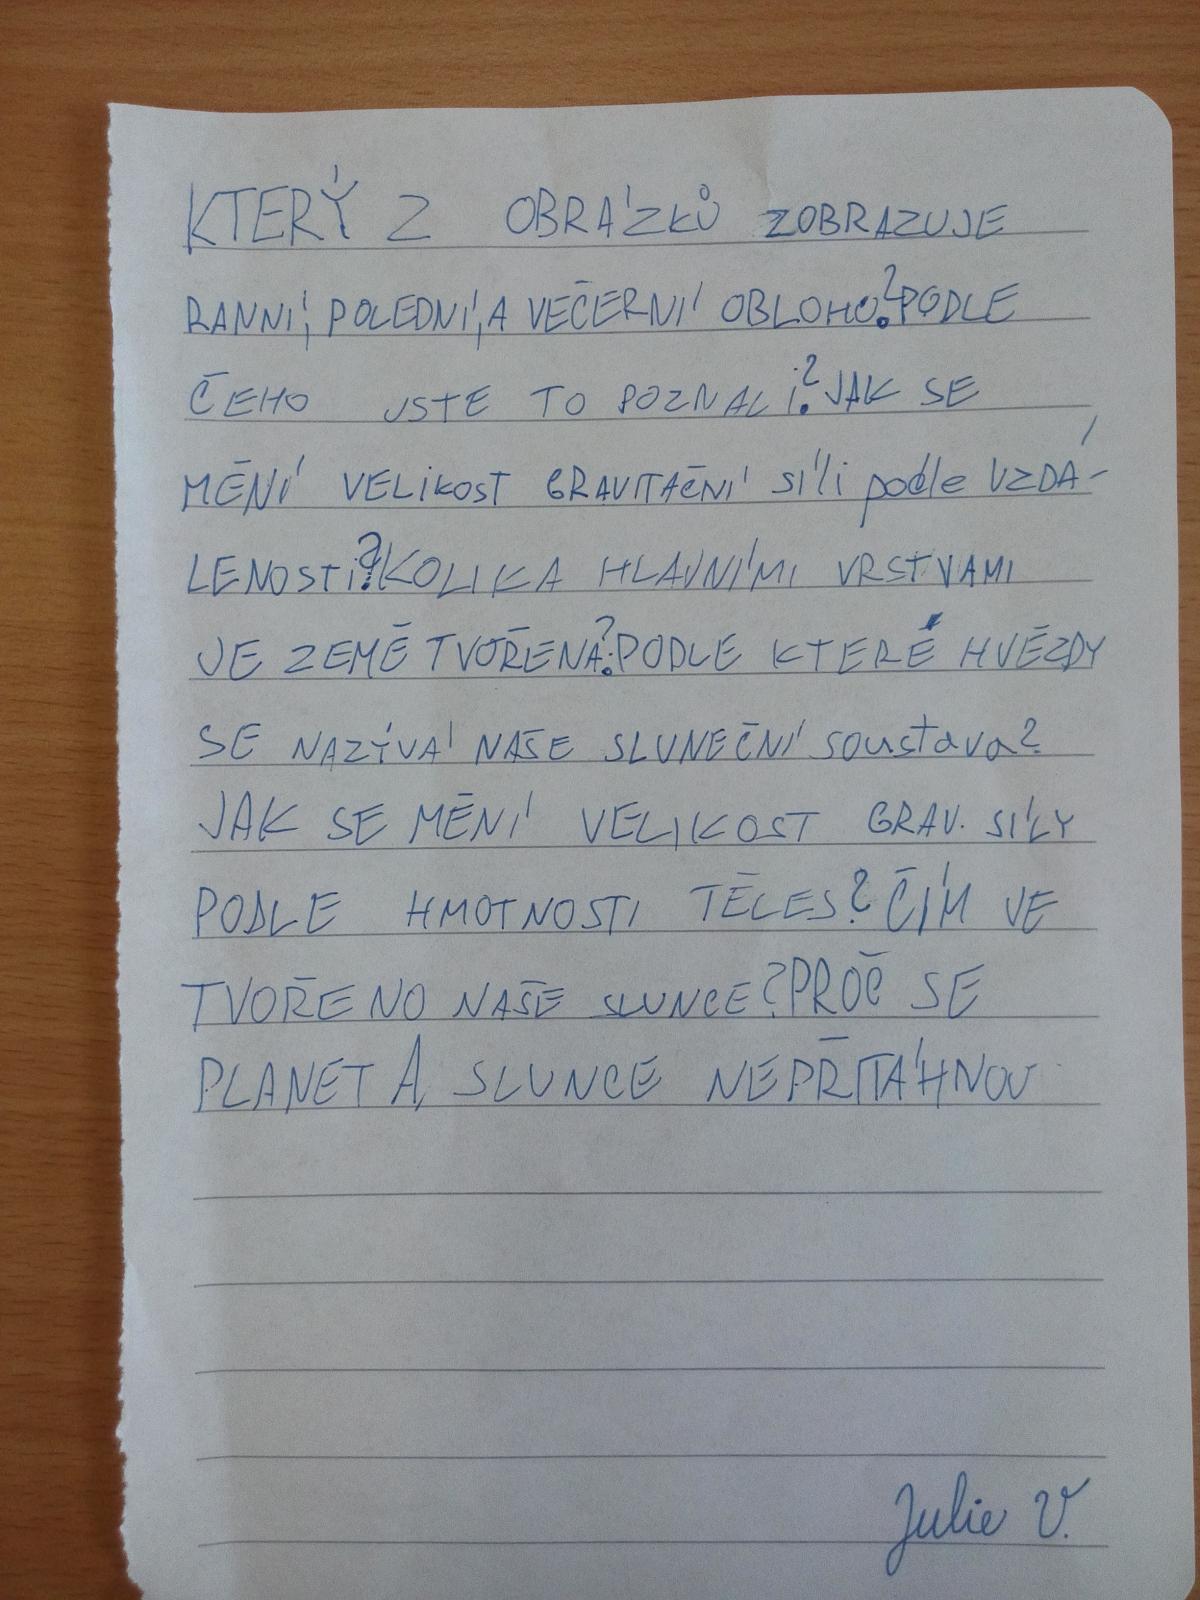 KTERÝ Z OBRÁZKŮ ZOBRAZUJE
RANNÍ, POLEDNÍ, A VEČERNÍ OBLOHO? PODLE
ČEHO JSTE TO POZNALI? JAK SE
MĚNÍ VELIKOST GRAVITAČNÍ SÍLI podle VZDÁ-
LENOSTI? KOLIKA HLAVNÍMI VRSTVAMI
JE ZEMĚ TVOŘENA? PODLE KTERÉ HVĚZDY
SE NAZÝVÁ NAŠE SLUNEČNÍ soustava?
JAK SE MĚNÍ VELIKOST GRAV. SÍLY
PODLE HMOTNOSTI TĚLES? ČÍM JE
TVOŘENO NAŠE SLUNCE? PROČ SE
PLANETA, SLUNCE NEPŘITÁHNOU
Julie V.